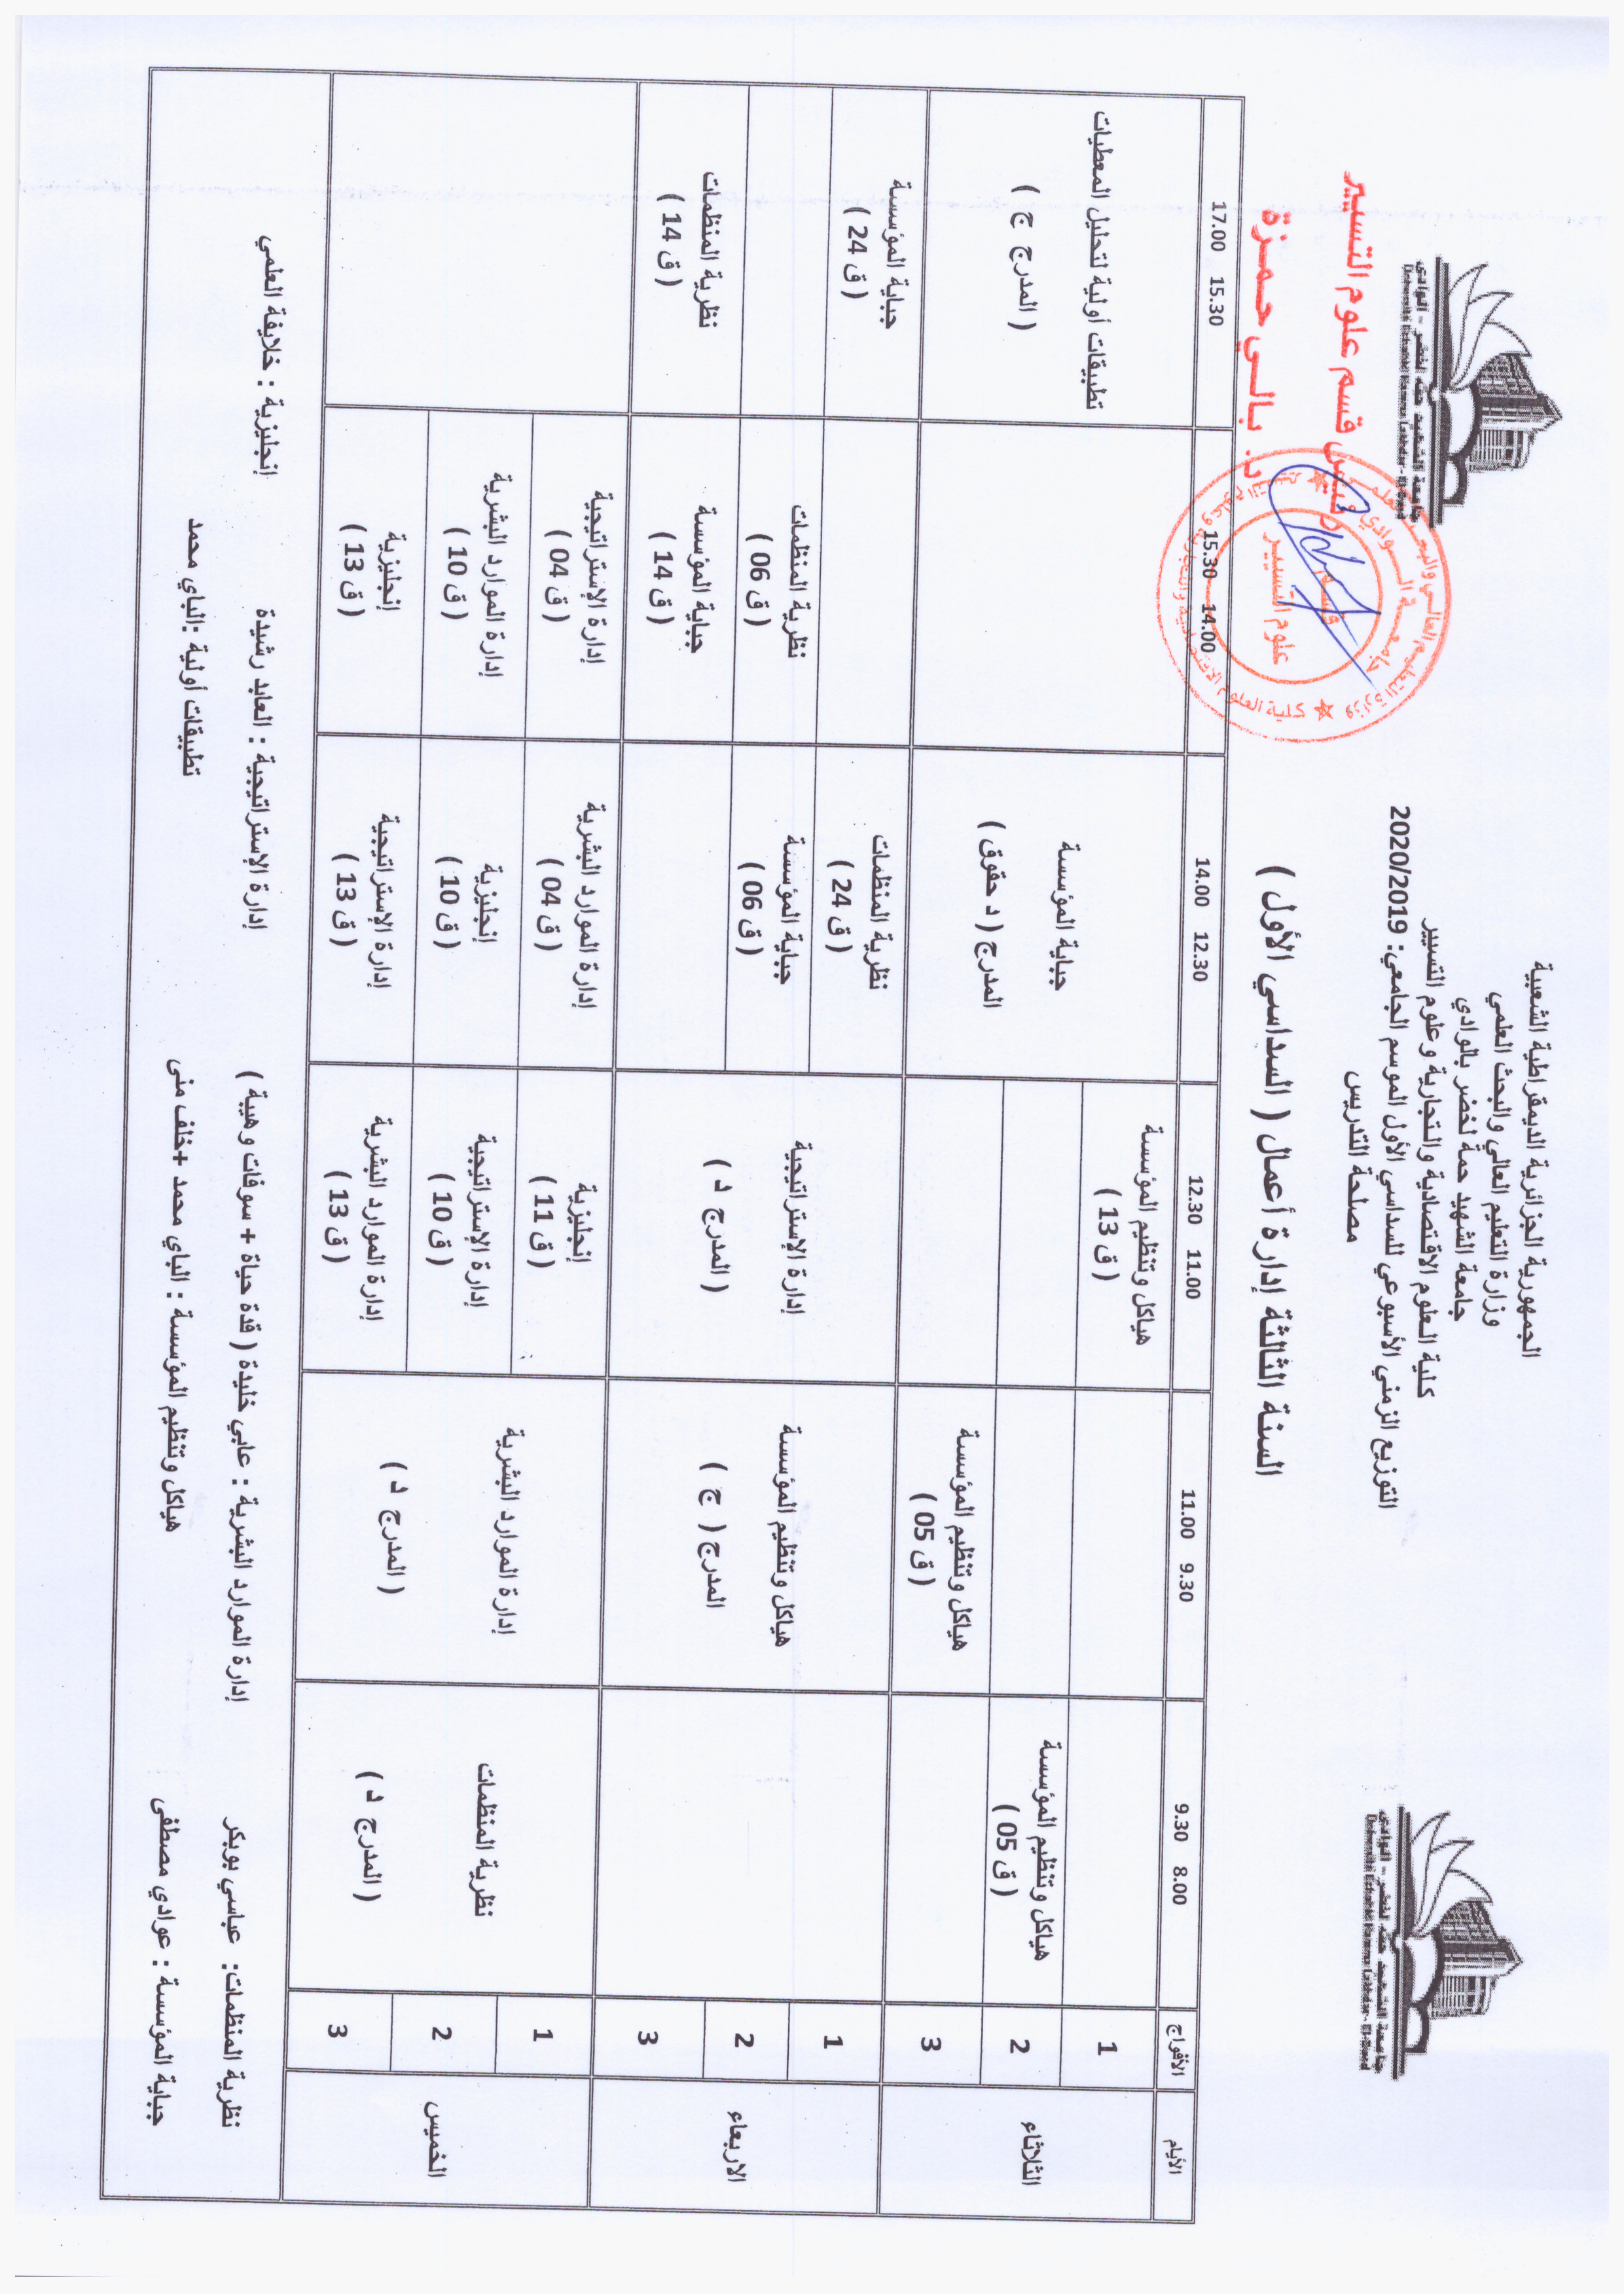 الجمهورية الجزائرية الديمقراطية الشعبية
وزارة التعليم العالي والبحث العلمي
جامعة الشهيد حمة لخضر بالوادي
كلية العلوم الاقتصادية والتجارية وعلوم التسيير
التوزيع الزمني الأسبوعي للسداسي الأول الموسم الجامعي: 2020/2019
مصلحة التدريس
جامعة الشهيد حمه لخضر - الوادي
جامعة الشهيد حمه لخضر - الوادي
السنة الثالثة إدارة أعمال ( السداسي الأول )
قسم علوم التسيير
د. بالي حمزة
علوم التسيير
الأيام الأفواج 8.00 9.30 9.30 11.00 11.00 12.30 12.30 14.00 14.00 15.30 15.30 17.00
الثلاثاء
1
هياكل وتنظيم المؤسسة
( ق 13 )
2
هياكل وتنظيم المؤسسة
( ق 05 )
3
هياكل وتنظيم المؤسسة
( ق 05 )
جباية المؤسسة
المدرج ( د حقوق )
تطبيقات أولية لتحليل المعطيات
( المدرج ج )
الاربعاء
هياكل وتنظيم المؤسسة
المدرج ( ج )
إدارة الإستراتيجية
( المدرج د )
1
نظرية المنظمات
( ق 24 )
جباية المؤسسة
( ق 24 )
2
جباية المؤسسة
( ق 06 )
نظرية المنظمات
( ق 06 )
3
جباية المؤسسة
( ق 14 )
نظرية المنظمات
( ق 14 )
الخميس
نظرية المنظمات
( المدرج د )
إدارة الموارد البشرية
( المدرج د )
1
إنجليزية
( ق 11 )
إدارة الموارد البشرية
( ق 04 )
إدارة الإستراتيجية
( ق 04 )
2
إدارة الإستراتيجية
( ق 10 )
إنجليزية
( ق 10 )
إدارة الموارد البشرية
( ق 10 )
3
إدارة الموارد البشرية
( ق 13 )
إدارة الإستراتيجية
( ق 13 )
إنجليزية
( ق 13 )
نظرية المنظمات: عباسي بوبكر إدارة الموارد البشرية : عابي خليدة ( قدة حياة + سوفات وهيبة ) إدارة الإستراتيجية : العابد رشيدة إنجليزية : خلايفة العلمي
جباية المؤسسة : عوادي مصطفى هياكل وتنظيم المؤسسة : الباي محمد +خلف منى تطبيقات أولية :الباي محمد